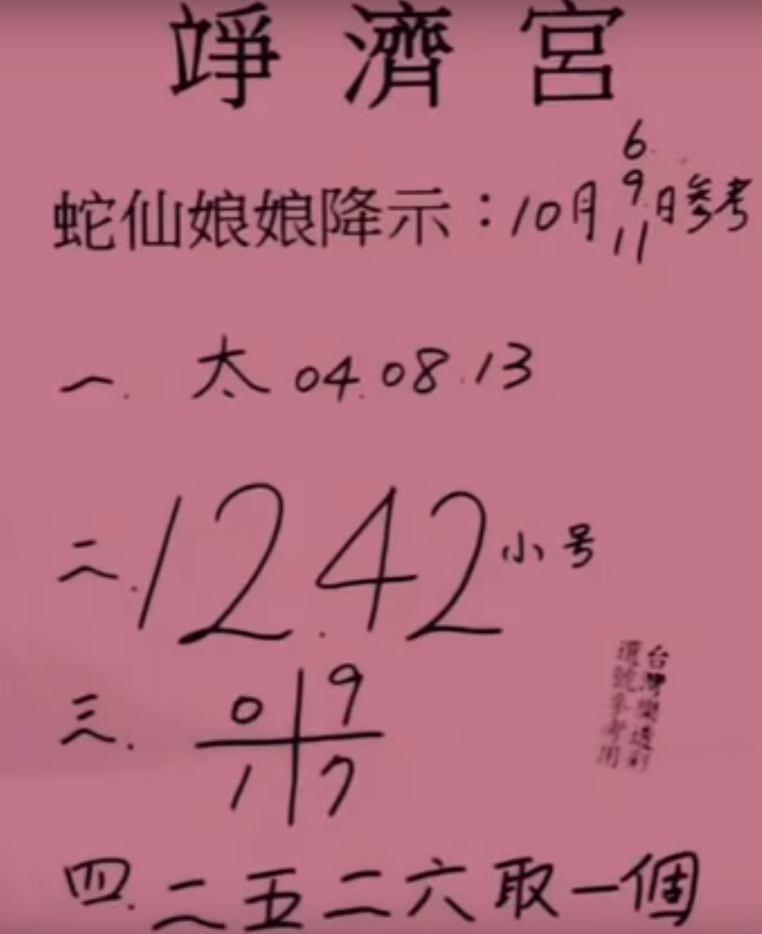 竫濟宮
蛇仙娘娘降示：10月6.9.11日參考
一. 太 04.08.13
二. 12.42小号
三. 0 9
1 7
四. 二五二六取一個
台灣樂透彩
選號參考用